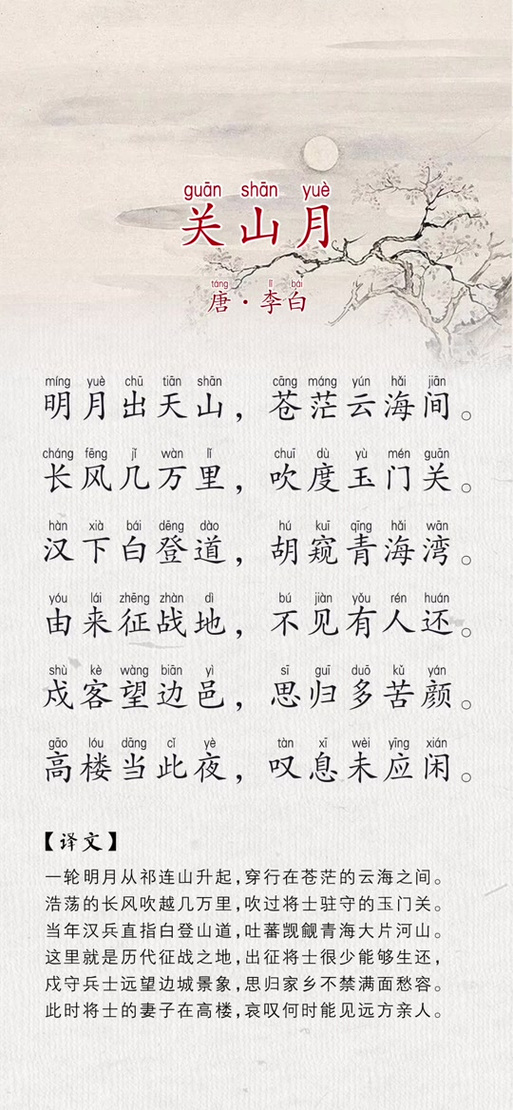 guān shān yuè
关山月
táng lǐ bái
唐·李白
míng yuè chū tiān shān cāng máng yún hǎi jiān
明月出天山，苍茫云海间。
cháng fēng jǐ wàn lǐ chuī dù yù mén guān
长风几万里，吹度玉门关。
hàn xià bái dēng dào hú kuī qīng hǎi wān
汉下白登道，胡窥青海湾。
yóu lái zhēng zhàn dì bú jiàn yǒu rén huán
由来征战地，不见有人还。
shù kè wàng biān yì sī guī duō kǔ yán
戍客望边邑，思归多苦颜。
gāo lóu dāng cǐ yè tàn xī wèi yīng xián
高楼当此夜，叹息未应闲。
【译文】
一轮明月从祁连山升起,穿行在苍茫的云海之间。
浩荡的长风吹越几万里,吹过将士驻守的玉门关。
当年汉兵直指白登山道,吐蕃觊觎青海大片河山。
这里就是历代征战之地,出征将士很少能够生还,
戍守兵士远望边城景象,思归家乡不禁满面愁容。
此时将士的妻子在高楼,哀叹何时能见远方亲人。